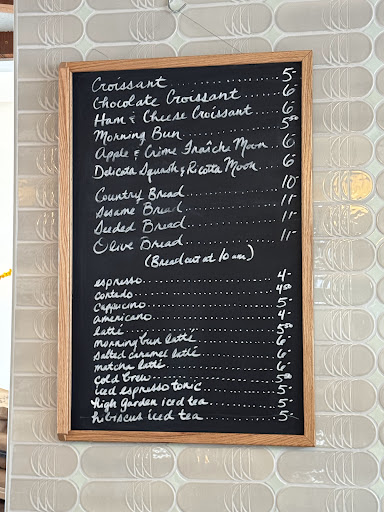 Croissant 5-
Chocolate Croissant 6-
Ham & Cheese Croissant 6-
Morning Bun 5.50
Apple & Crème Fraîche Moon 6-
Delicata Squash & Ricotta Moon 6-
Country Bread 10-
Sesame Bread 11-
Seeded Bread 11-
Olive Bread 11-
(Bread out at 10 am)
espresso 4-
cortado 4.50
Cappucino 5-
americano 4-
latté 5.50
morning bun latté 6-
salted caramel latté 6-
matcha latté 6-
cold brew 5.50
iced espresso tonic 5-
high garden iced tea 5-
hibiscus iced tea 5-